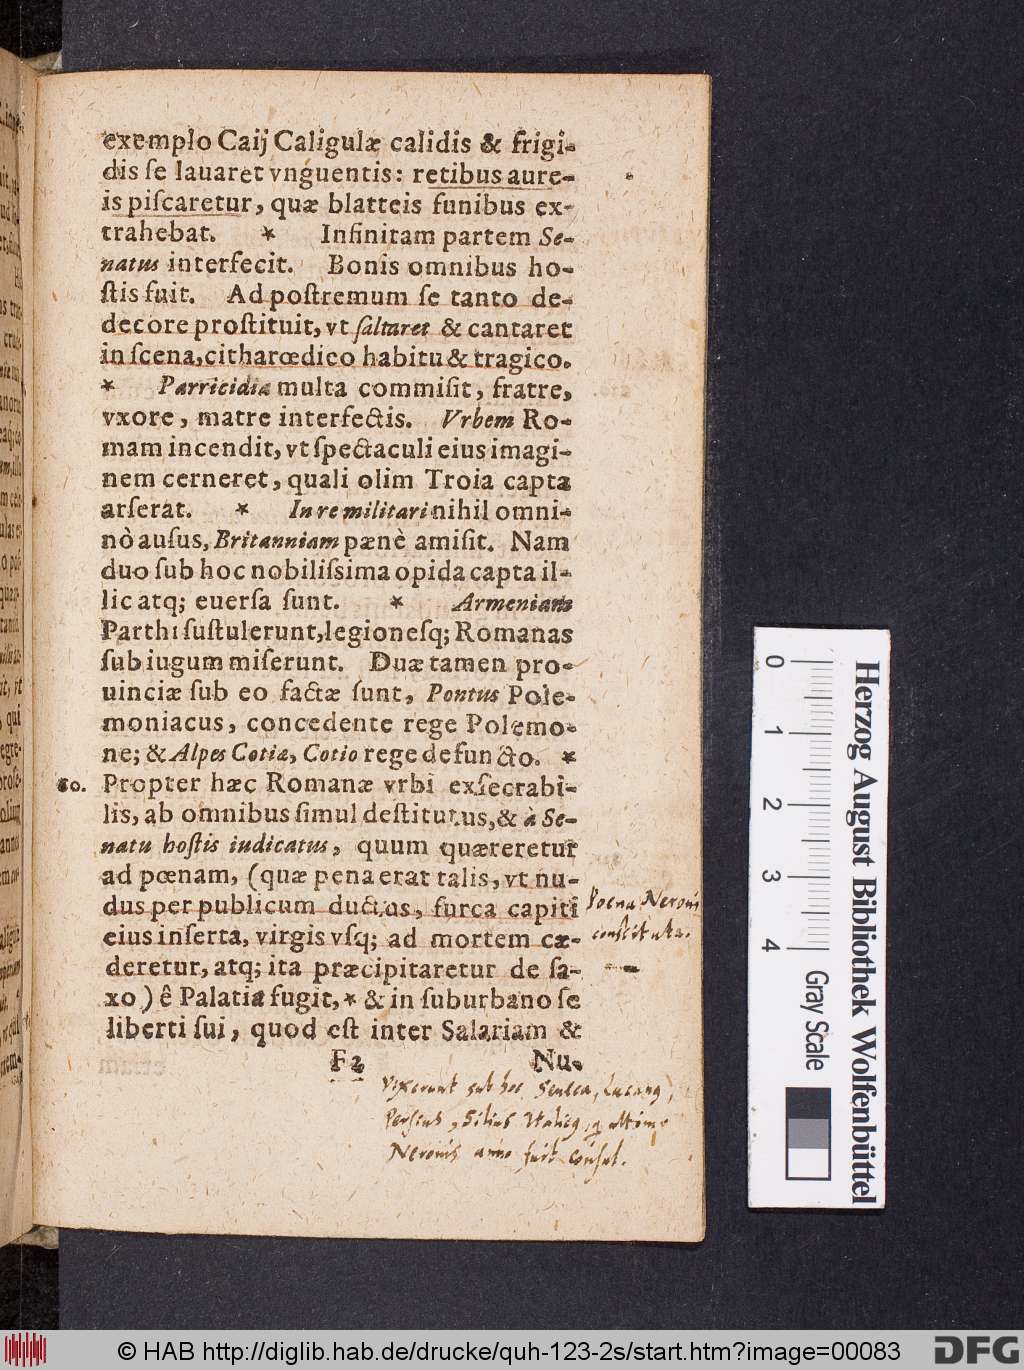 exemplo Caij Caligulæ calidis & frigi-
dis ſe lauaret vnguentis: retibus aure-
is piſcaretur, quæ blatteis funibus ex-
trahebat. * Infinitam partem Se-
natus interfecit. Bonis omnibus ho-
ſtis fuit. Ad poſtremum ſe tanto de-
decore proſtituit, vt ſaltaret & cantaret
in ſcena, citharœdico habitu & tragico.
* Parricidia multa commiſit, fratre,
vxore, matre interfectis. Vrbem Ro-
mam incendit, vt ſpectaculi eius imagi-
nem cerneret, quali olim Troia capta
arſerat. * In re militari nihil omni-
nò auſus, Britanniam pænè amiſit. Nam
duo ſub hoc nobiliſsima opida capta il-
lic atq; euerſa ſunt. * Armeniam
Parthi ſuſtulerunt, legioneſq; Romanas
ſub iugum miſerunt. Duæ tamen pro-
uinciæ ſub eo factæ ſunt, Pontus Pole-
moniacus, concedente rege Polemo-
ne; & Alpes Cotiæ, Cotio rege defuncto. *
60. Propter hæc Romanæ vrbi exſecrabi-
lis, ab omnibus ſimul deſtitutus, & à Se-
natu hoſtis iudicatus, quum quæreretur
ad pœnam, (quæ pena erat talis, vt nu-
dus per publicum ductus, furca capiti
eius inſerta, virgis vſq; ad mortem cæ-
deretur, atq; ita præcipitaretur de ſa-
xo) ê Palatia fugit, * & in ſuburbano ſe
liberti ſui, quod eſt inter Salariam &
F2 Nu-
Poena Neronis
constituta.
Vixerunt sub hoc Seneca, Lucanq,
Persius, Silius Italicq, q ultimo
Neronis anno fuit consul.
0 1 2 3 4
Gray Scale
Herzog August Bibliothek Wolfenbüttel
© HAB http://diglib.hab.de/drucke/quh-123-2s/start.htm?image=00083
DFG